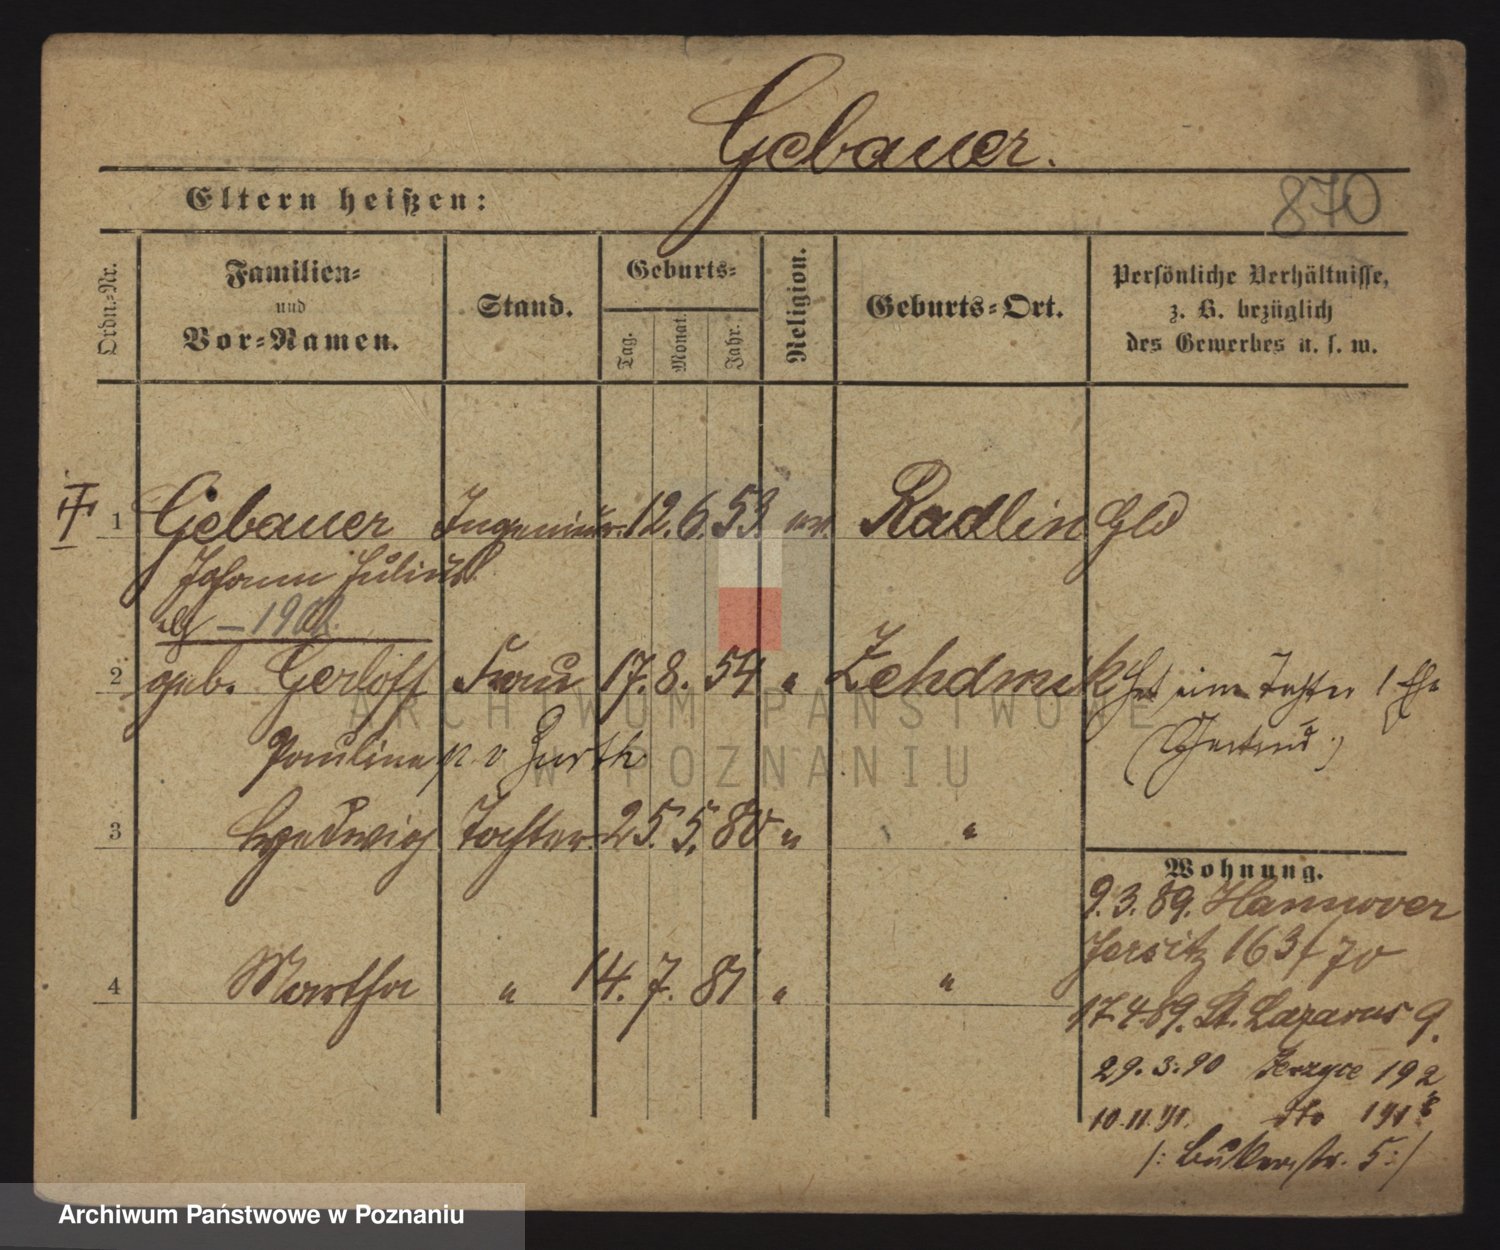 Gebauer.
870
Eltern heißen:
Ordn.-Nr.
Familien-
und
Vor-Namen.
Stand.
Geburts-
Tag.
Monat.
Jahr.
Religion.
Geburts-Ort.
Persönliche Verhältnisse,
z. B. bezüglich
des Gewerbes u. s. w.
1 Gebauer Ingenieur 12. 6. 53. ev. Radlin
Johann Julius
1902.
2 geb. Gerloff Frau 17. 8. 54 " Zehdenick Hat eine Tochter
Pauline
3 Hedwig Tochter 25. 5. 80 " "
4 Martha " 14. 7. 81 " "
Wohnung.
9. 3. 89. Hannover
Jersitz 163/70
17.4.89. St. Lazarus 9.
29.3.90 Jerzyce 192
10.11.91. dto
/: Bukerstr. 5:/
ARCHIWUM PAŃSTWOWE
W POZNANIU
Archiwum Państwowe w Poznaniu